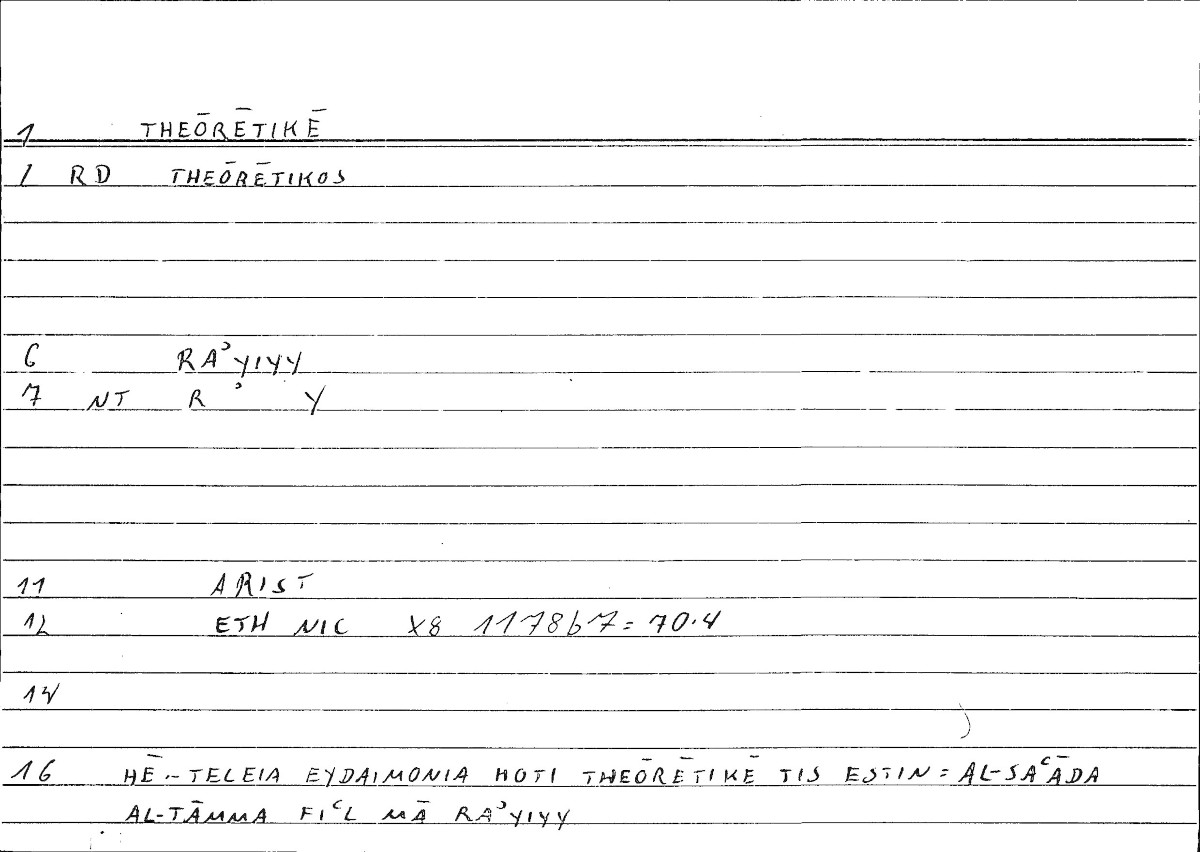 1 THEŌRĒTIKĒ
1 RD THEŌRĒTIKOS
6 RAʾYIYY
7 NT R ʾ Y
11 ARIST
12 ETH NIC X8 1178b7 = 70.4
14
16 HĒ-TELEIA EYDAIMONIA HOTI THEŌRĒTIKĒ TIS ESTIN = AL-SAʿĀDA
AL-TĀMMA FIʿL MĀ RAʾYIYY